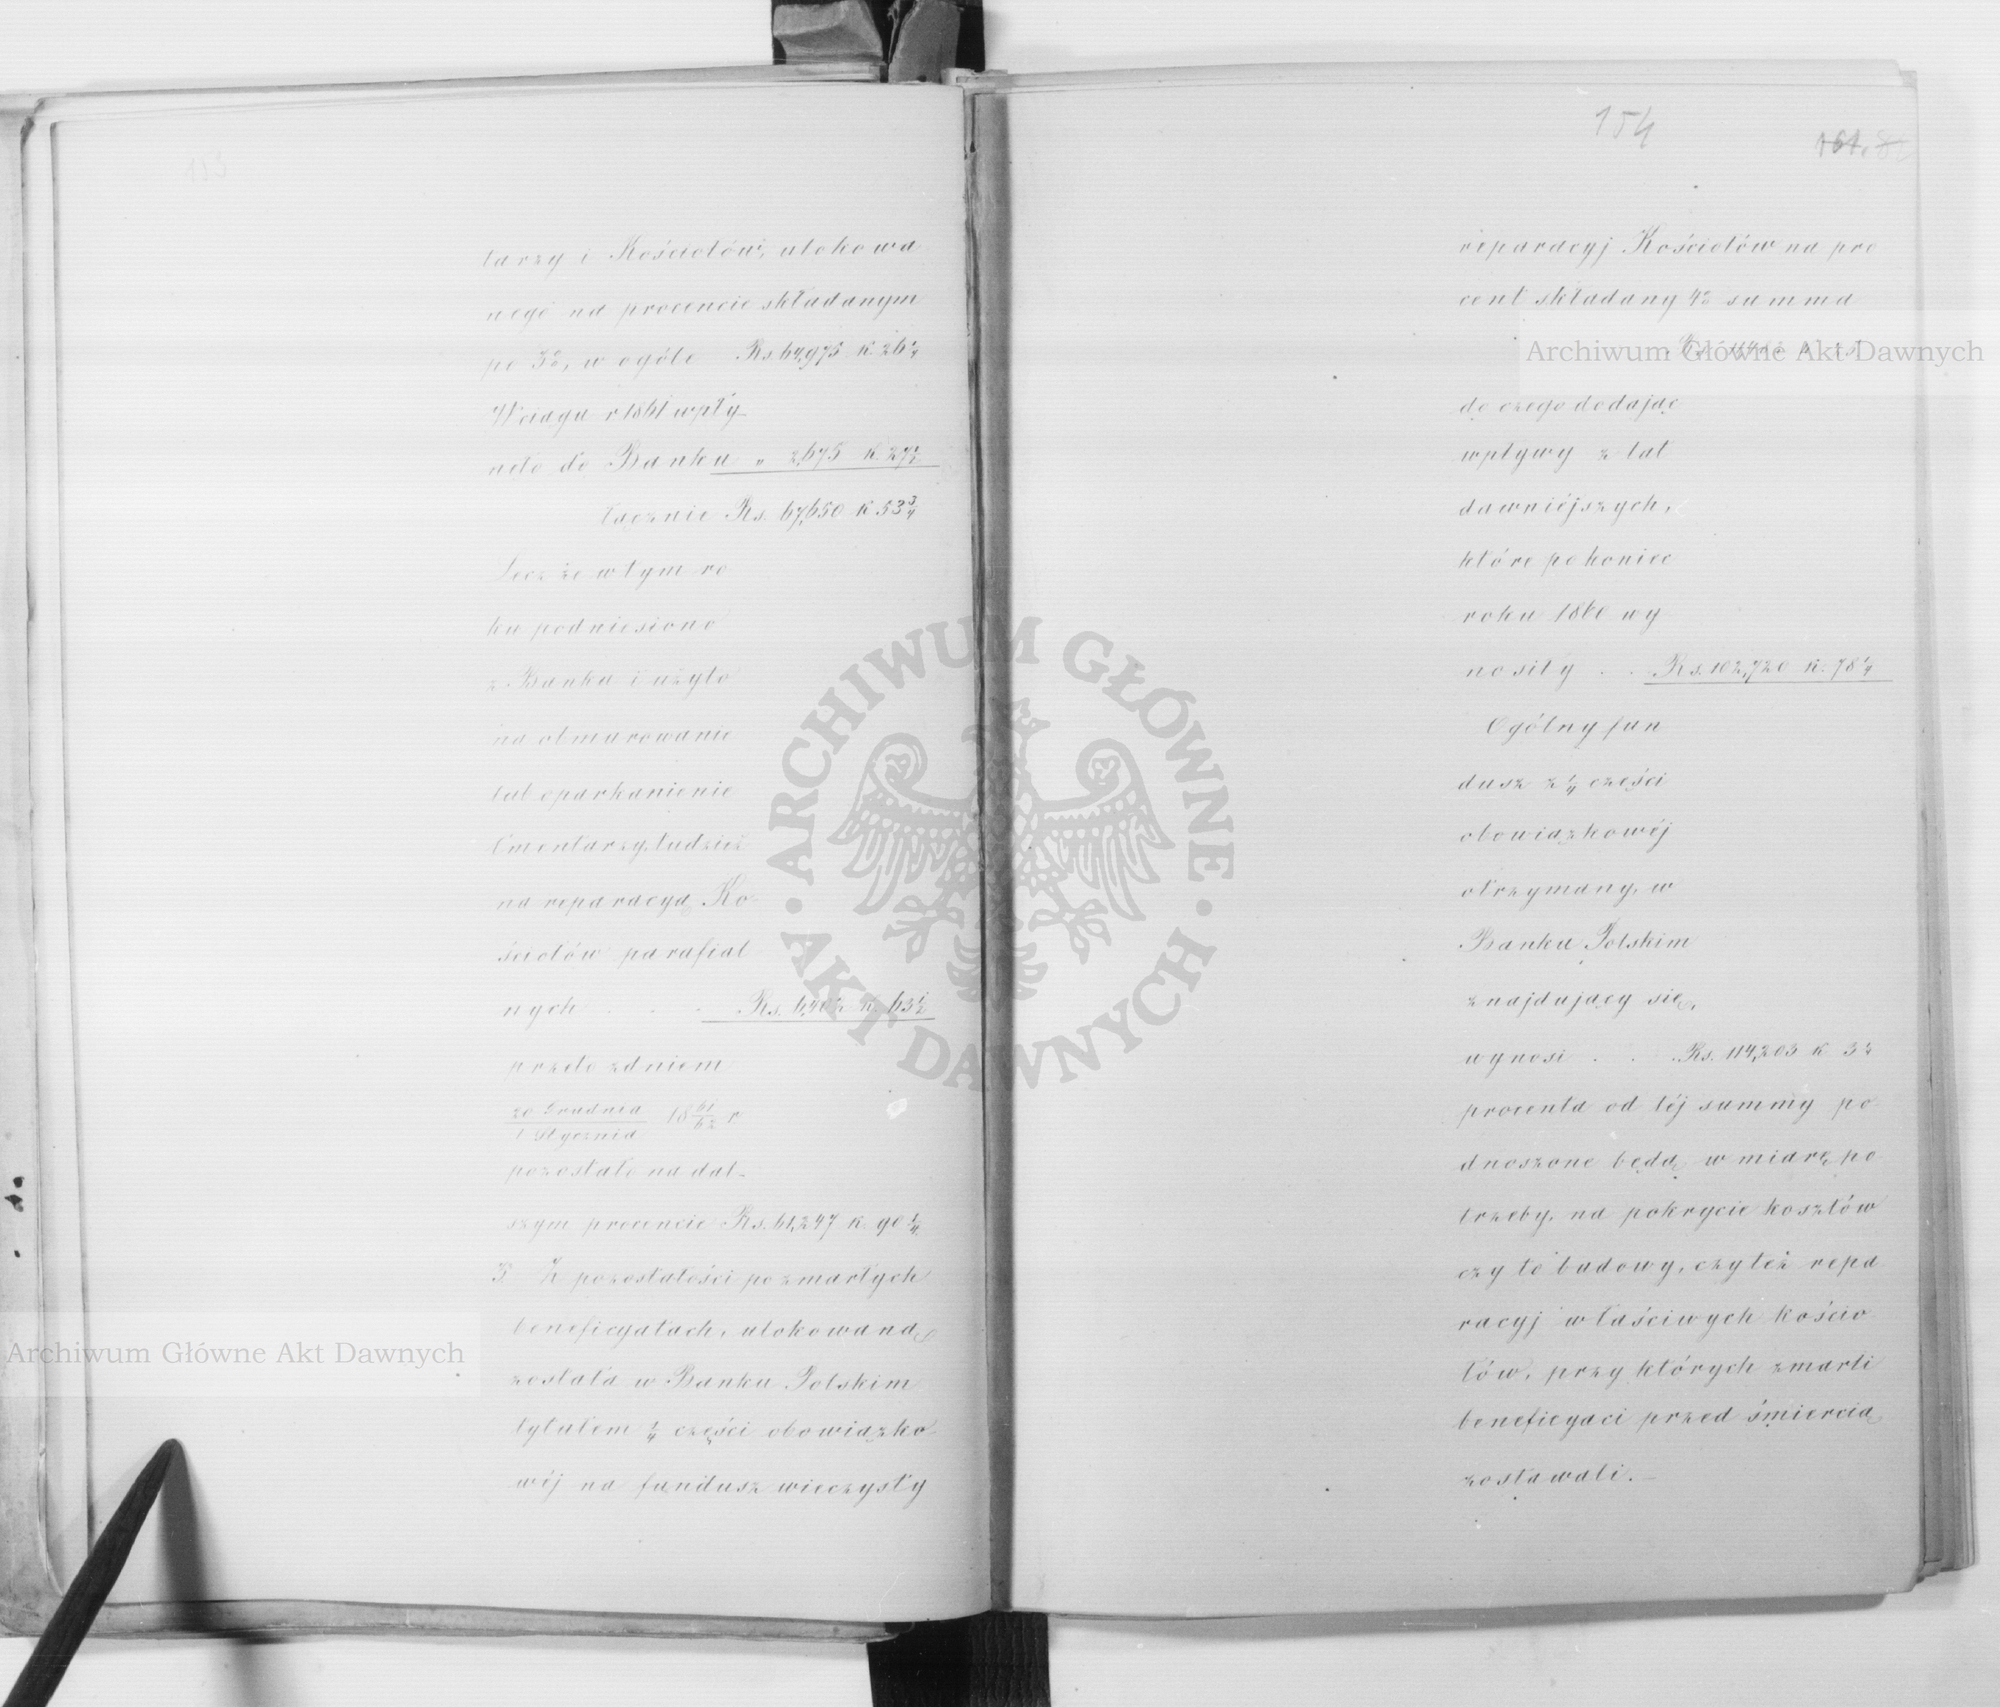 tarzy i Kościołów, ulokowa
nego na procencie składanym
po 3%, w ogóle Rs. 64,975 k. 26 1/4
W ciągu r 1861 wpły_
nęło do Banku " 2,675 k. 27 1/2
łącznie Rs. 67,650 k 53 3/4
Lecz że w tym ro
ku podniesiono
z Banku i użyto
na obmurowanie
lub oparkanienie
Cmentarzy, tudzież
na reparacyą Ko
ściołów parafial
nych . . . Rs. 6,402 k. 63 1/2
przeto z dniem
20 Grudnia / 1 Stycznia 18 61/62 r
pozostało na dal_
szym procencie Rs. 61,247 k. 90 1/4
3. Z pozostałości po zmarłych
beneficyatach, ulokowaną
została w Banku Polskim
tytułem 1/4 części obowiązko
wéj na fundusz wieczysty
154
161.
reparacyj Kościołów na pro
cent składany 4% summa
Rs.
do czego dodając
wpływy z lat
dawniéjszych,
które po koniec
roku 1860 wy
nosiły . . Rs. 102,720 k. 78 1/4
Ogólny fun
dusz z 1/4 części
obowiązkowéj
otrzymany, w
Banku Polskim
znajdujący się,
wynosi . . . Rs. 114,203 k 32
procenta od téj summy po
dnoszone będą w miarę po
trzeby, na pokrycie kosztów
czy to budowy, czy też repa
racyj właściwych kościo
łów, przy których zmarli
beneficyaci przed śmiercią
zostawali.
Archiwum Główne Akt Dawnych
Archiwum Główne Akt Dawnych
ARCHIWUM GŁÓWNE AKT DAWNYCH